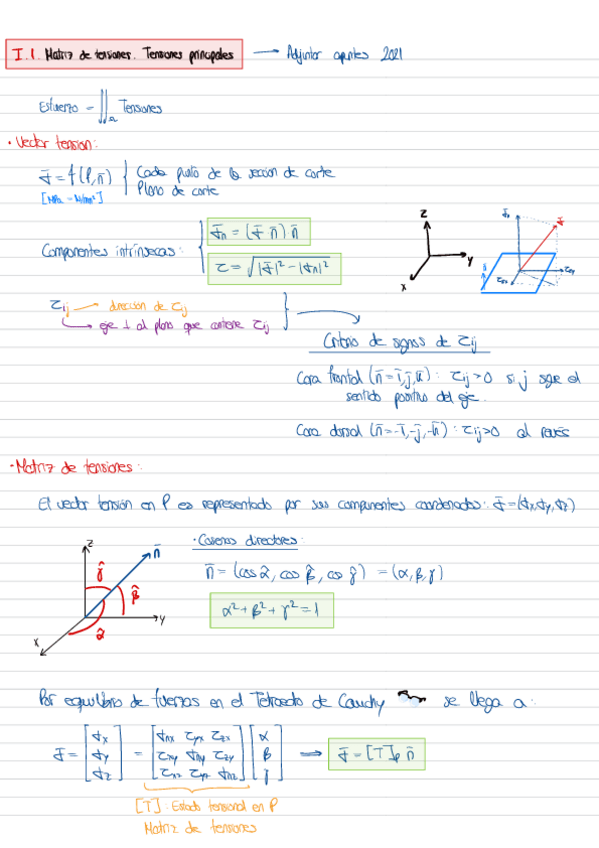 I.1. Matriz de tensiones. Tensiones principales → Adjuntar apuntes 2021
Esfuerzo = ∬Ω Tensiones
• Vector tensión:
σ̄ = f(P, n̄) { Cada punto de la sección de corte
Plano de corte
[MPa = N/mm²]
Componentes intrínsecas:
σ̄n = (σ̄ n̄) n̄
τ = √|σ̄|² - |σn|²
z
y
x
τij → dirección de τij
→ eje ⊥ al plano que contiene τij
Criterio de signos de τij
Cara frontal (n̄ = ī, j̄, k̄): τij > 0 si j sigue el
sentido positivo del eje.
Cara dorsal (n̄ = -ī, -j̄, -k̄): τij > 0 al revés
• Matriz de tensiones:
El vector tensión en P es representado por sus componentes coordenados: σ̄ = (σx, σy, σz)
z
n̄
γ̂
β̂
y
x
α̂
• Cosenos directores:
n̄ = (cos α̂, cos β̂, cos γ̂) = (α, β, γ)
α² + β² + γ² = 1
Por equilibrio de fuerzas en el Tetraedro de Cauchy se llega a:
σ̄ = [σx σy σz] = [σnx τyx τzx; τxy σny τzy; τxz τyz σnz] [α β γ] → σ̄ = [T]p n̄
[T]: Estado tensional en P
Matriz de tensiones